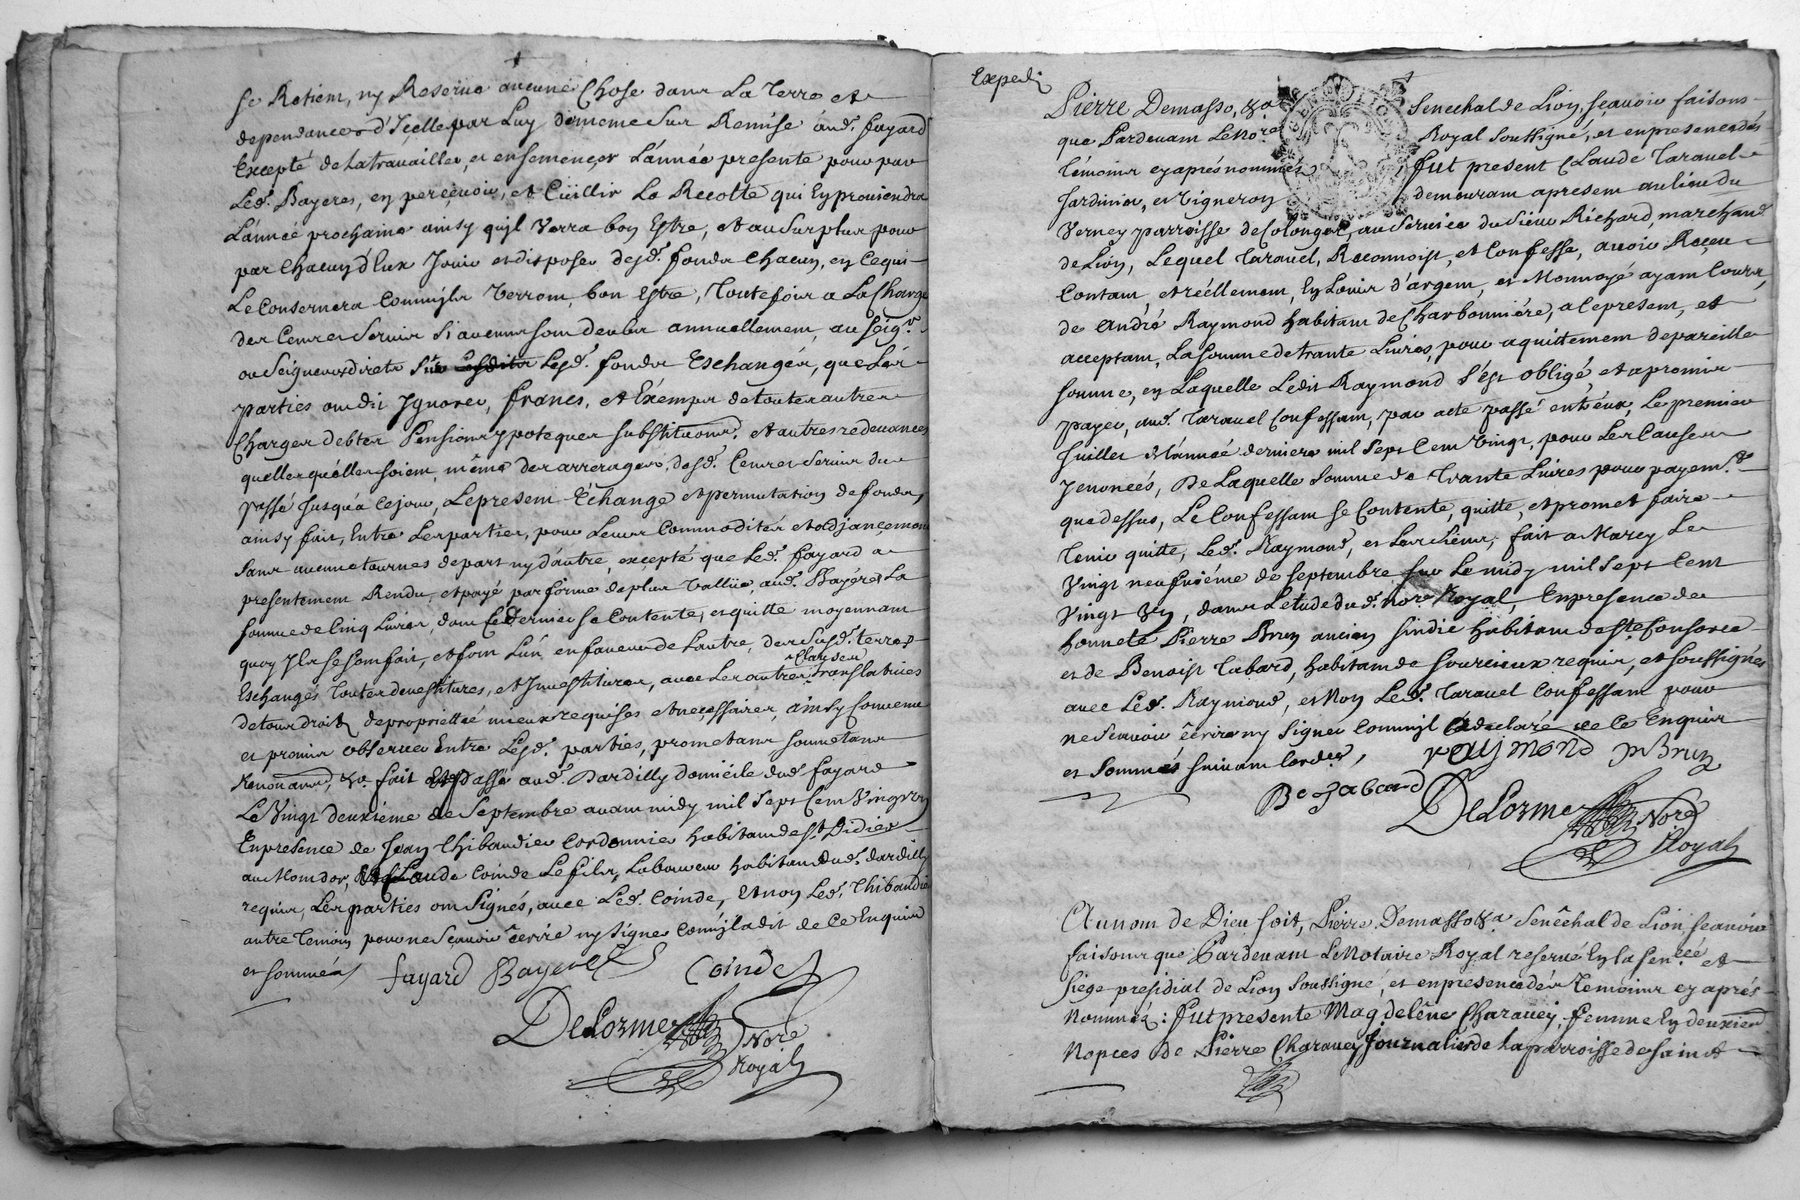 se Retient, ny Reserve aucune Chose dans La Terre et
dependances d'Icelle par Luy de meme sur Remise aud. fayard
Excepté de La travailler, et ensemençer L'année presente pour par
Led. Bayere, en perçevoir, et Cüillir La Recolte qui En proviendra
L'année prochaine ainsy qu'il Verra bon Estre, et au surplus pour
par Chacun d'Eux Jouir et disposer desd. fonds Chacun, en Ce qui
Le Consernera Comm'ils Verront bon Estre, Toutefois a La Charge
des Cens et Servis si aucuns sont deubs annuellement, au Seig.r
ou Seigneurs directs sur Lesd. fonds Eschangés, que Les
parties ont dit Ignorer, francs, et Exempts de toutes autres
Charges debtes Pensions ypoteques substitutions, et autres redevances
quelles qu'elles soient, même des arrerages, desd. Cens et Servis du
passé Jusqu'a Ce jour, Le present Echange et permutation de fonds,
ainsy fait, Entre Les parties, pour Leurs Commodités et adjançement
sans aucune tournes de part ny d'autre, excepté que Led. fayard a
presentement Rendu, et payé par forme de plus Vallüe, aud. Bayere La
somme de Cinq Livres, dont Ce Dernier se Contente, et quitte moyennant
quoy Ils se sont fait, et font L'un en faveur de L'autre, des susd. terres
Clauses
Eschangés Toutes devestitures, et Investitures, avec Les autres translatives
de tous droits de proprietté mieux requises et necessaires, ainsy Convenu
et promis observer Entre Lesd. parties, promettans soumettans
Renonceans, &a. fait Et Passé aud. Dardilly domicile dud. fayard
Le Vingt deuxième de Septembre avant midy mil Sept Cent Vingt un
En presence de Jean Thibaudier Cordonnier habitant de St. Didier
au Mondor, Et Claude Coinde Le fils, Laboureur habitant dud. dardilly
requis, Les parties ont Signés, avec Led. Coinde, Et non Led. Thibaudier
autre Temoin pour ne Sçavoir écrire ny Signer Comm'il a dit de Ce Enquis
et sommés
fayard Bayere Coindet
DeLorme Nore
Royal
Expedi
Pierre Demasso, &a Senechal de Lion, sçavoir faisons
que Pardevant Le Nore Royal Soussigné, et en presence des
Témoins cy après nommés fut present Claude Taravel
Jardinier, et Vigneron demeurant a present au lieu du
Verney parroisse de Colonges, au Service du Sieur Richard, marchand
de Lion, Lequel Taravel, Reconnoist, et Confesse, avoir Reçeu
Contant, et réellement, En Louis d'argent, et Monnoyé ayant Cours,
de André Raymond habitant de Charbonniére, a Ce present, et
acceptant, La somme de trante Livres, pour aquittement de pareille
somme, en Laquelle Ledit Raymond s'est obligé et a promis
payer, aud. Taravel Confessant, par acte passé entr'eux, Le premier
Juillet de L'année derniere mil Sept Cent Vingt, pour Les Causes
y enoncés, De Laquelle Somme de Trante Livres pour payem.t
que dessus, Le Confessant se Contente, quitte, et promet faire
Tenir quitte, Led. Raymond, et Les siens, fait a Marcy Le
Vingt neufviéme de Septembre sur Le midy mil Sept Cent
Vingt Un, dans L'etude dud. nore Royal, En presence de
honnete Pierre Brun ancien Sindic habitant de Ste Consorce
et de Benoist Tabard, habitant de Sourcieux requis, et soussignés
avec Led. Raymond, et Non Led. Taravel Confessant pour
ne Sçavoir écrire ny Signer Comm'il a declaré de Ce Enquis
et Sommés Suivant Lord.ce,
Raymond P Brun
Be Tabard
DeLorme Nore
Royal
Au nom de Dieu soit, Pierre Demasso &a. Senêchal de Lion sçavoir
faisons que Pardevant Le Notaire Royal reservé En la sen.ceé et
siege presidial de Lion soussigné, et en presence des Temoins cy aprés
Nommés: fut presente Magdelêne Charavey, femme En deuxiem
Nopces de Pierre Charavey Journalier de La parroisse de Sainct